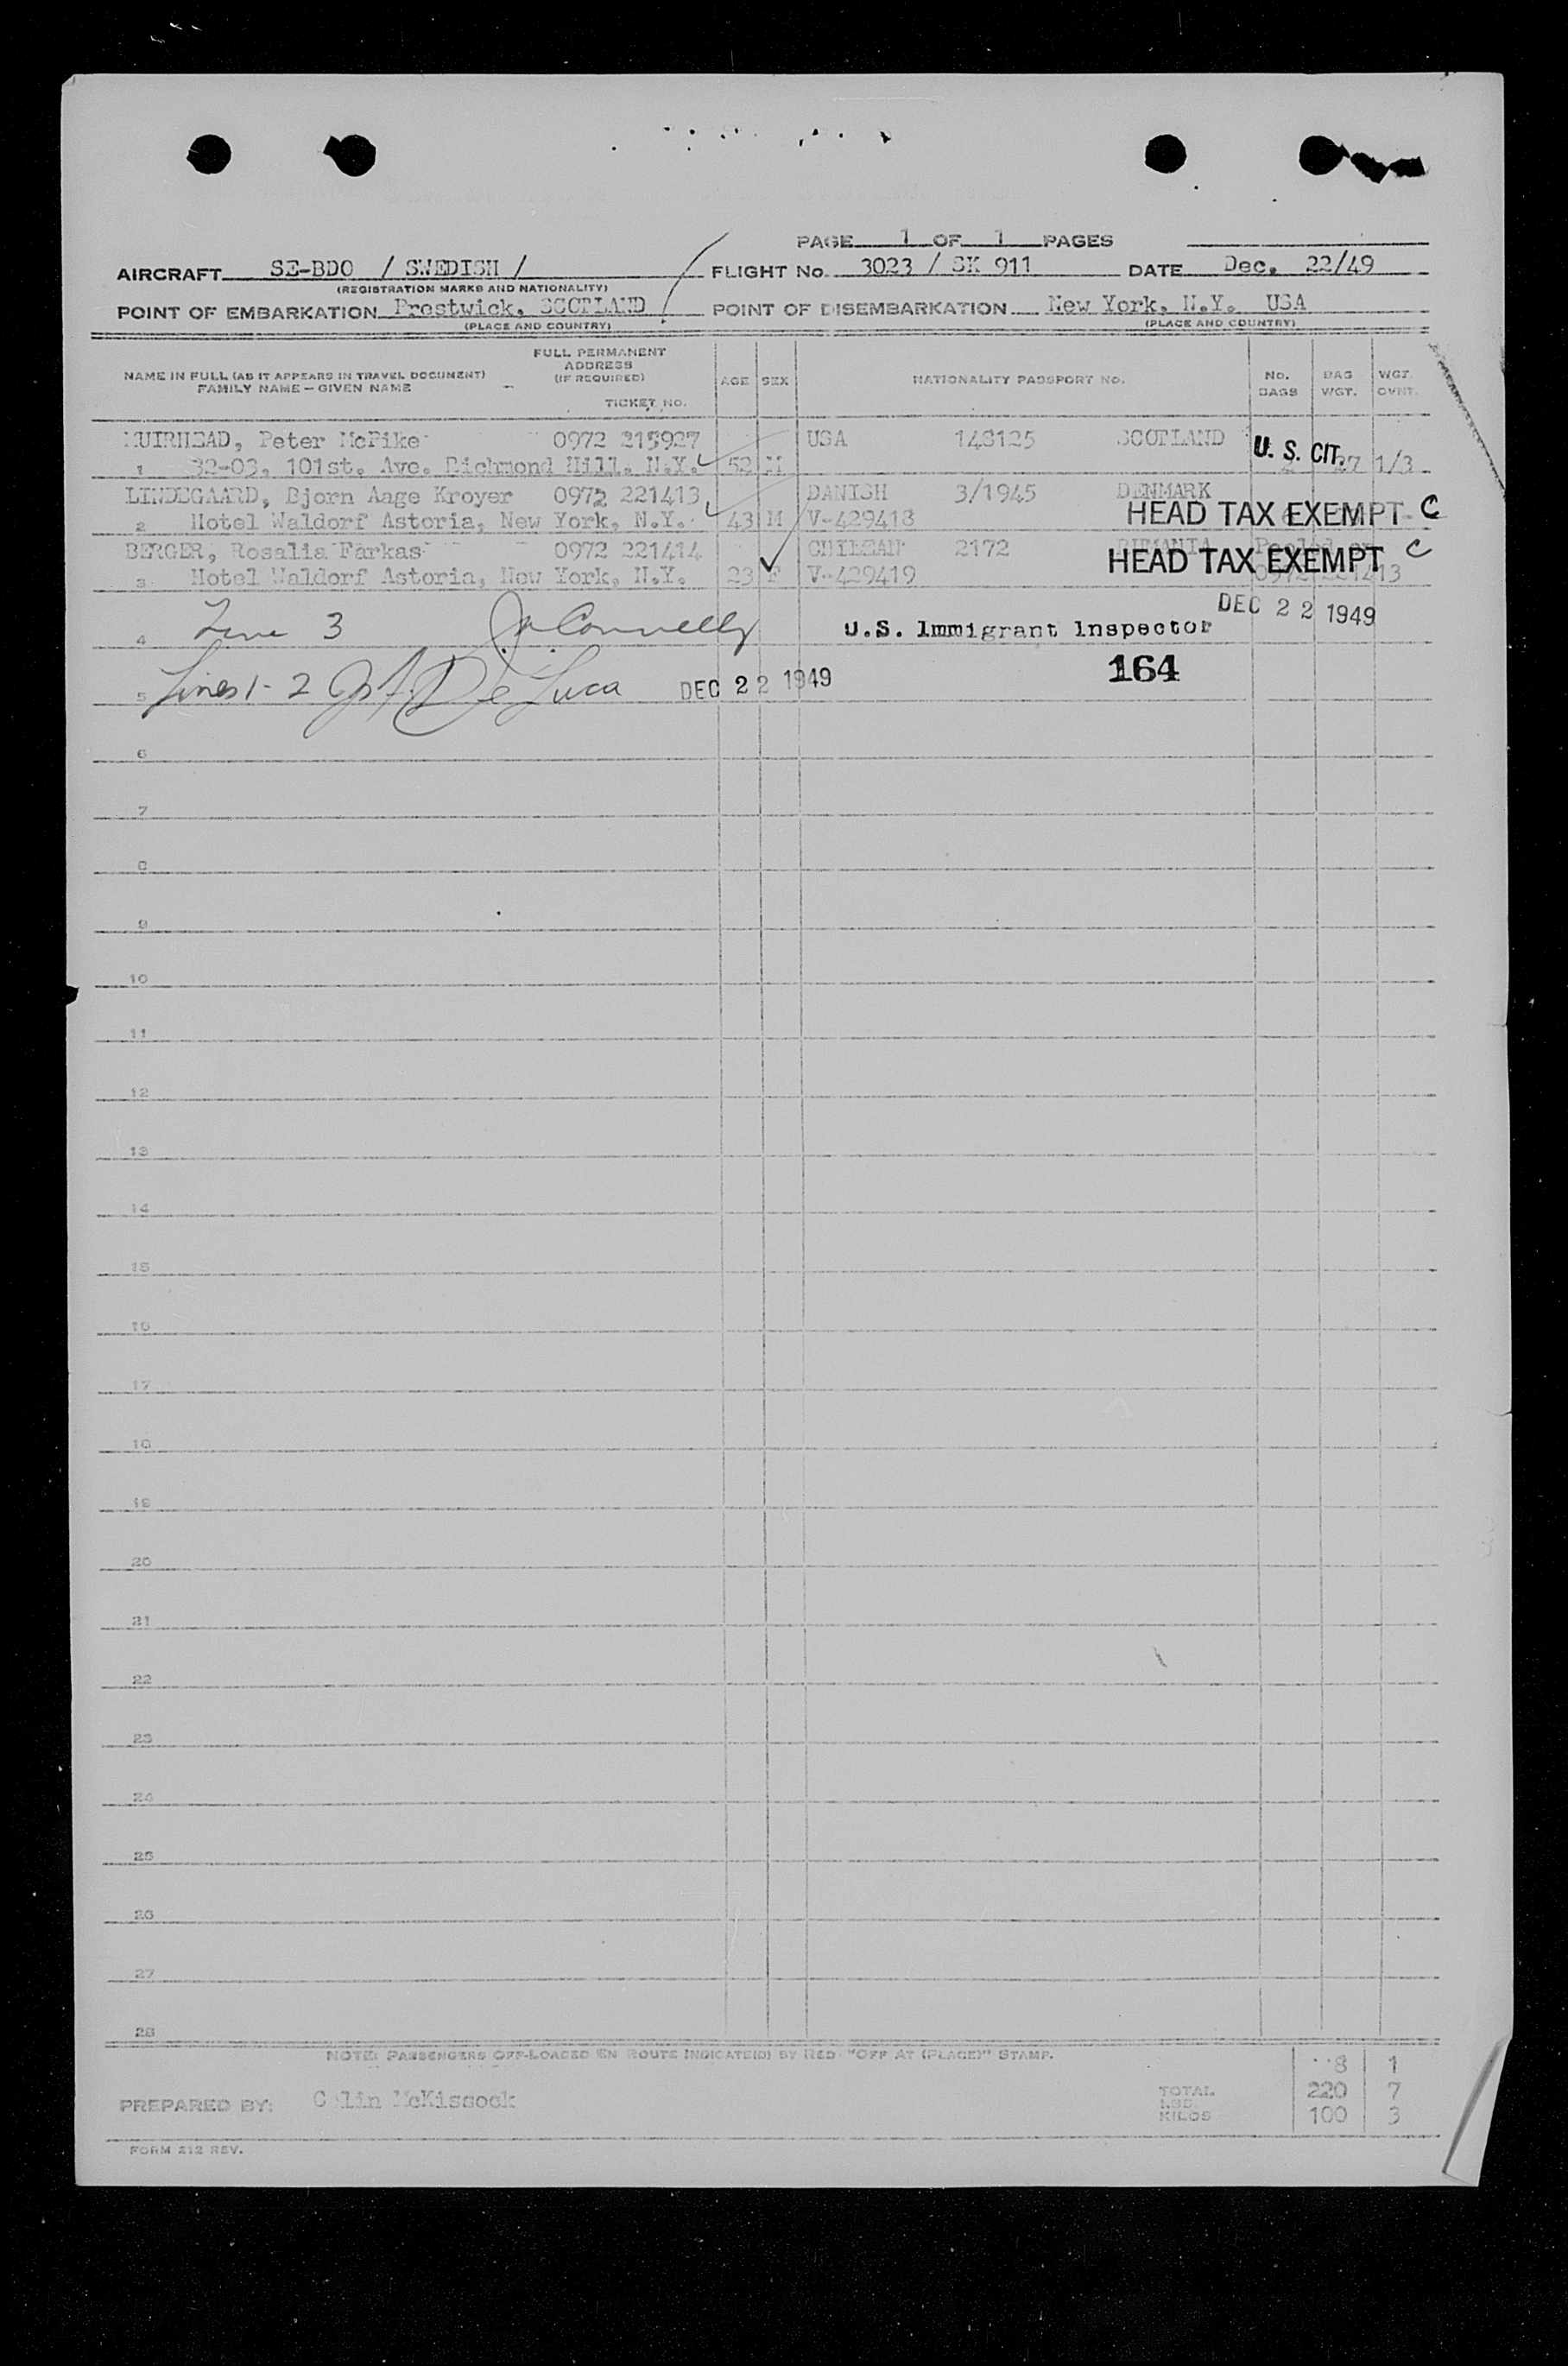 PAGE 1 OF 1 PAGES
AIRCRAFT SE-BDO / SWEDISH / FLIGHT No. 3023 / SK 911 DATE Dec. 22/49
(REGISTRATION MARKS AND NATIONALITY)
POINT OF EMBARKATION Prestwick, SCOTLAND POINT OF DISEMBARKATION New York, N.Y. USA
(PLACE AND COUNTRY) (PLACE AND COUNTRY)
NAME IN FULL (AS IT APPEARS IN TRAVEL DOCUMENT)
FAMILY NAME – GIVEN NAME
FULL PERMANENT
ADDRESS
(IF REQUIRED)
TICKET NO.
AGE SEX NATIONALITY PASSPORT NO. NO. BAGS BAG WGT. WGT. OVWT.
MUIRHEAD, Peter McPike 0972 215927 USA 148125 SCOTLAND U. S. CIT.
1 32-03, 101st. Ave. Richmond Hill. N.Y. 52 M 27 1/3
LINDEGAARD, Bjorn Aage Kroyer 0972 221413 DANISH 3/1945 DENMARK
2 Hotel Waldorf Astoria, New York, N.Y. 43 M V-429418 HEAD TAX EXEMPT C
BERGER, Rosalia Farkas 0972 221414 CHILEAN 2172 RUMANIA HEAD TAX EXEMPT C
3 Hotel Waldorf Astoria, New York, N.Y. 23 F V-429419 0972 221413
4 Line 3 J. Connelly U.S. Immigrant Inspector DEC 22 1949
5 Lines 1-2 De Luca DEC 22 1949 164
6
7
8
9
10
11
12
13
14
15
16
17
18
19
20
21
22
23
24
25
26
27
28
NOTE: PASSENGERS OFF-LOADED EN ROUTE INDICATE(D) BY RED "OFF AT (PLACE)" STAMP.
8 1
PREPARED BY: Colin McKissock TOTAL
LBS. 220 7
KILOS 100 3
FORM 212 REV.